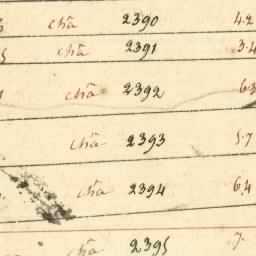 chã 2390 4.2
chã 2391 3.4
chã 2392 6.3
chã 2393 5.7
chã 2394 6.4
chã 2395 7.